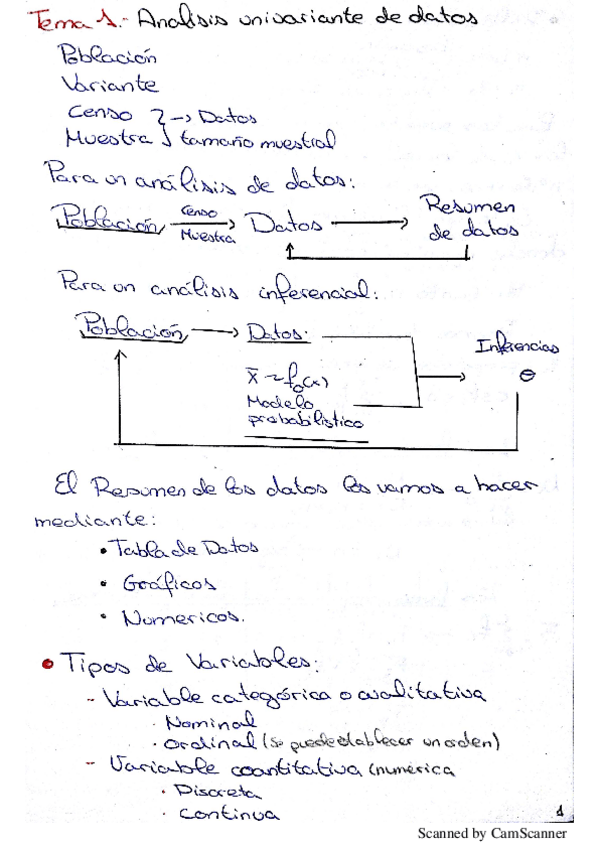 Tema 1.- Analisis univariante de datos
Población
Variante
Censo } -> Datos
Muestra } tamaño muestral
Para un análisis de datos:
Población Censo Muestra Datos Resumen de datos
Para un análisis inferencial:
Población -> Datos.
Inferencias
x̄ ~ f_θ(x) θ
Modelo
probabilistico
El Resumen de los datos los vamos a hacer
mediante:
• Tabla de Datos
• Gráficos
• Numericos.
• Tipos de Variables:
- Variable categórica o cualitativa
· Nominal
· Ordinal (se puede establecer un orden)
- Variable cuantitativa (numérica
· Discreta
· Continua
1
Scanned by CamScanner